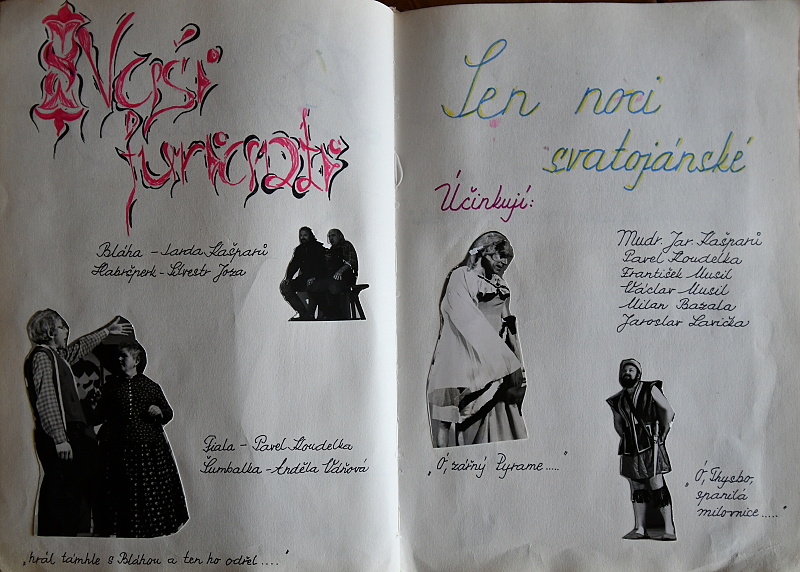 Naši
furianti
Bláha - Jarda Kašparů
Habršperk - Silvestr Joza
Fiala - Pavel Koudelka
Šumbalka - Anděla Váňová
"hrál támhle s Bláhou a ten ho odřel...."
Sen noci
svatojánské
Účinkují:
Mudr. Jar. Kašparů
Pavel Koudelka
František Musil
Václav Musil
Milan Bazala
Jaroslav Lavička
"Ó, zářný Pyrame....."
"Ó, Thysbo,
spanilá
milovnice....."